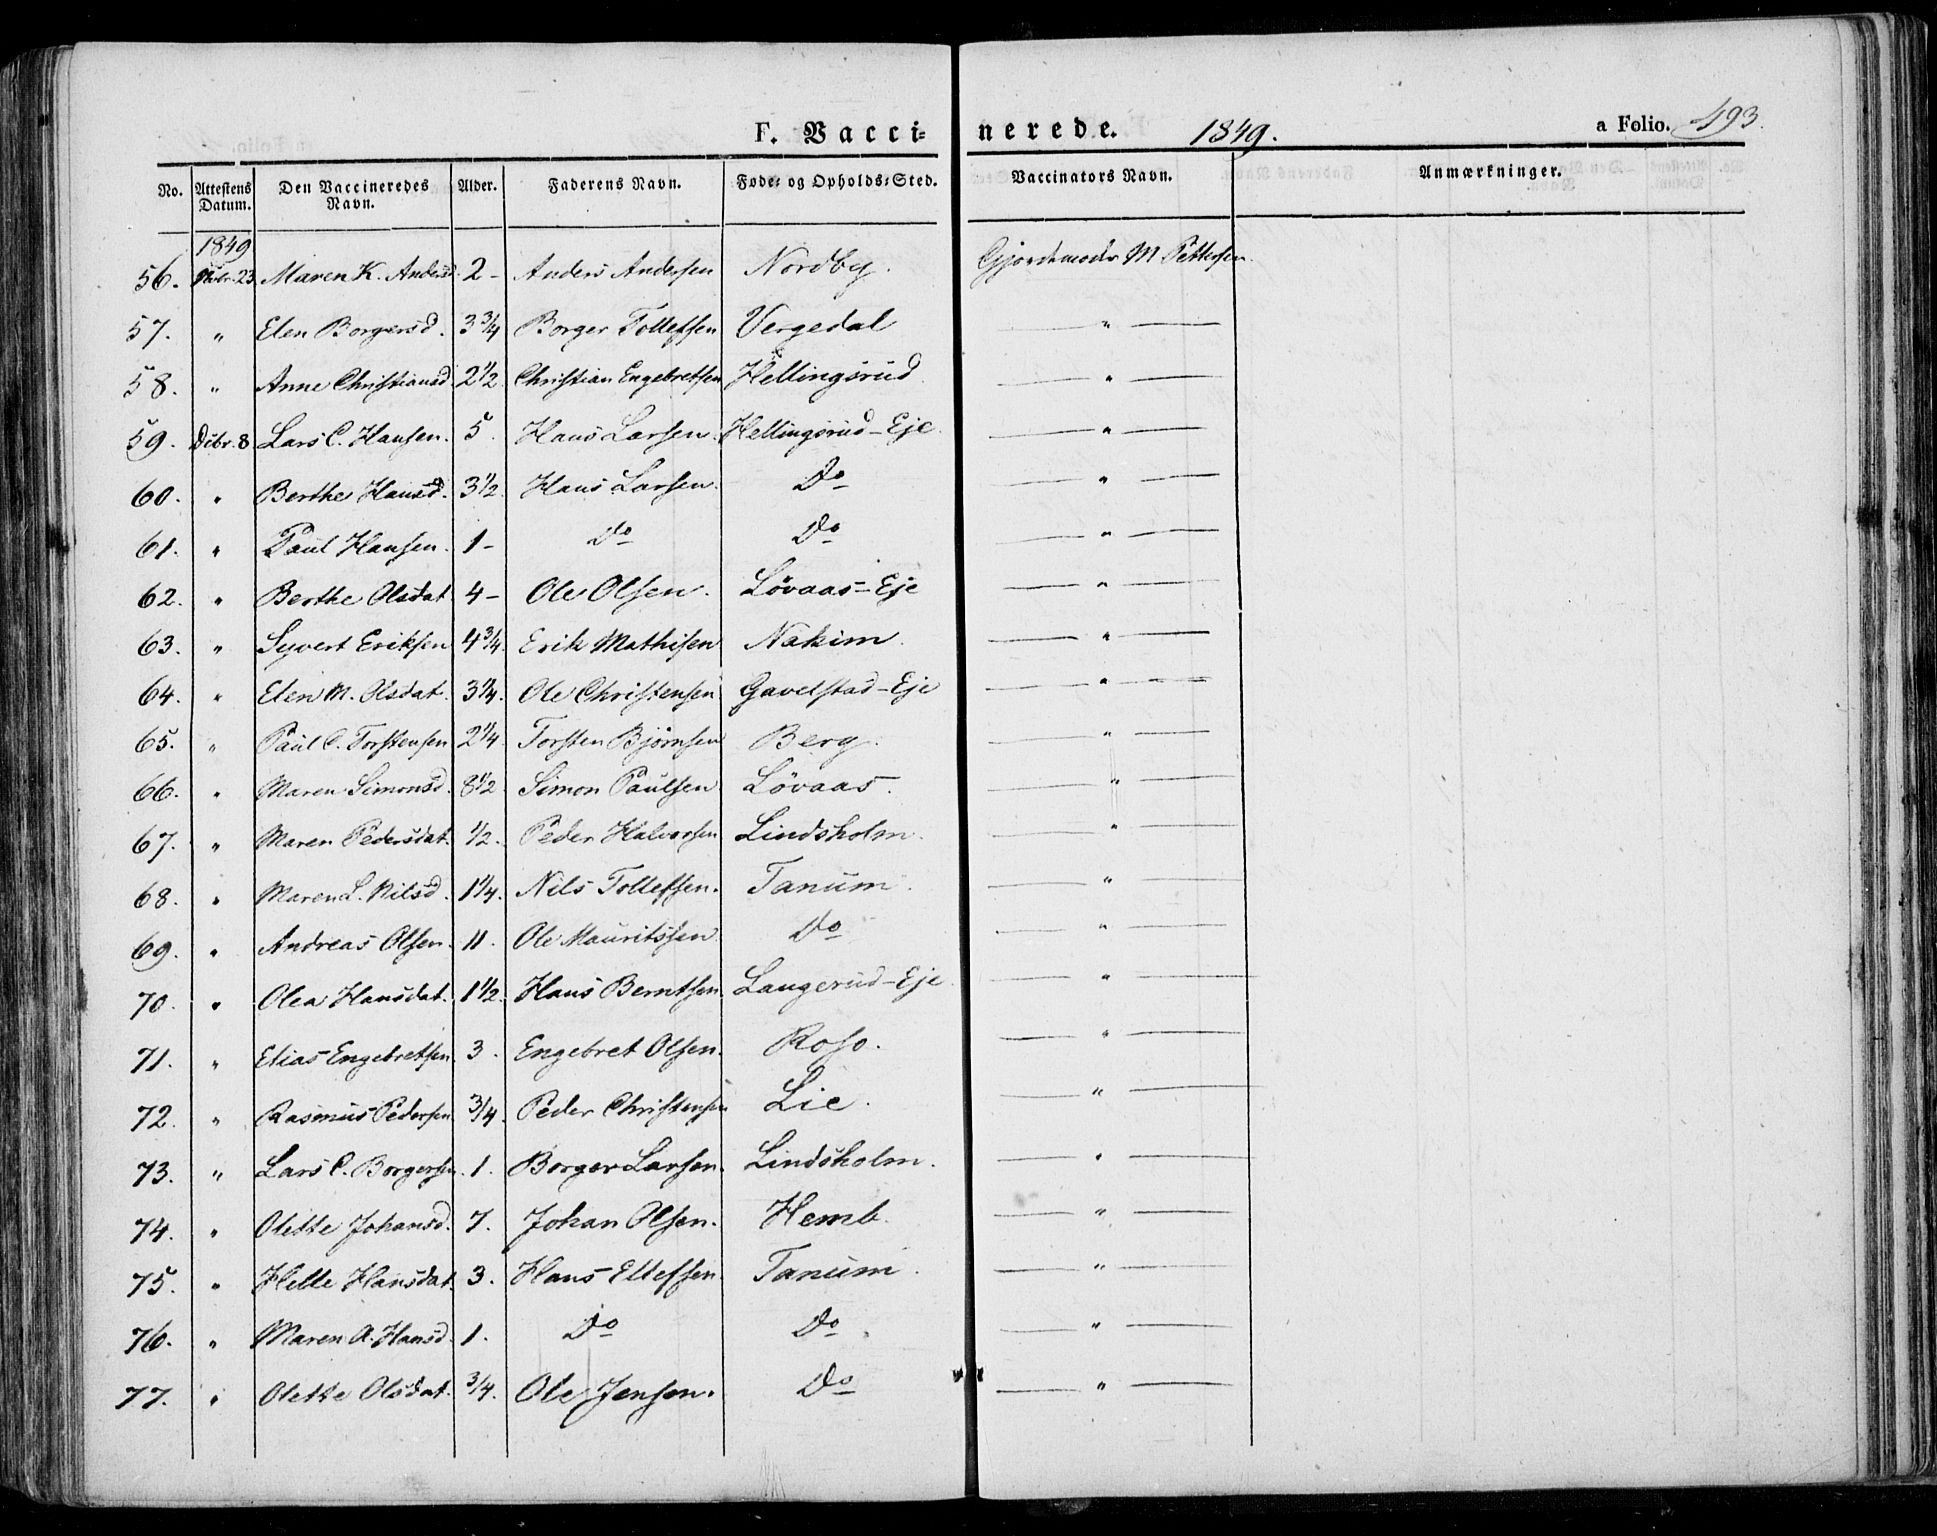 F. Vaccinerede. 1849. a Folio. 493.
No. Attestens Datum. Den Vaccineredes Navn. Alder. Faderens Navn. Føde- og Opholds-Sted. Vaccinators Navn. Anmærkninger.
1849
56. 23. Maren K. Andersd. 2 - Anders Andersen Nordby. Gjordemoder M Pettersen
57. " Elen Borgersd. 3 3/4 Borger Tollefsen Vergedal — " —
58. " Anne Christiansd. 2 1/2 Christian Engebretsen Hellingsrud — " —
59. Dcbr. 8 Lars C. Hansen. 5. Hans Larsen. Hellingsrud-Eje. — " —
60. " Berthe Hansd. 3 1/2. Hans Larsen. Do — " —
61. " Paul Hansen. 1- Do Do — " —
62. " Berthe Olsdat 4- Ole Olsen. Løvaas-Eje — " —
63. " Syvert Eriksen 4 3/4. Erik Mathisen Nakim. — " —
64. " Elen M. Olsdat. 3 1/4. Ole Christensen Gavelstad-Eje — " —
65. " Paul C. Torstensen 2 1/4. Torsten Bjørnsen Berg. — " —
66. " Maren Simonsd. 8 1/2 Simon Paulsen Løvaas. — " —
67. " Maren Pedersdat. 1/2. Peder Halvorsen Lindsholm. — " —
68. " Maren L. Nilsd. 1 1/4. Nils Tollefsen. Tanum. — " —
69. " Andreas Olsen. 11. Ole Mauritssen Do — " —
70. " Olea Hansdat. 1 1/2. Hans Berntsen. Langerud-Eje. — " —
71. " Elias Engebretsen. 3. Engebret Olsen. Roso. — " —
72. " Rasmus Pedersen 3/4. Peder Christensen Lie. — " —
73. " Lars C. Borgersen. 1. Borger Larsen. Lindsholm. — " —
74. " Olette Johansd. 7. Johan Olsen. Hemb. — " —
75. " Helle Hansdat. 3. Hans Ellefsen. Tanum. — " —
76. " Maren A. Hansd. 1. Do Do. — " —
77. " Olette Olsdat. 3/4. Ole Jensen. Do — " —